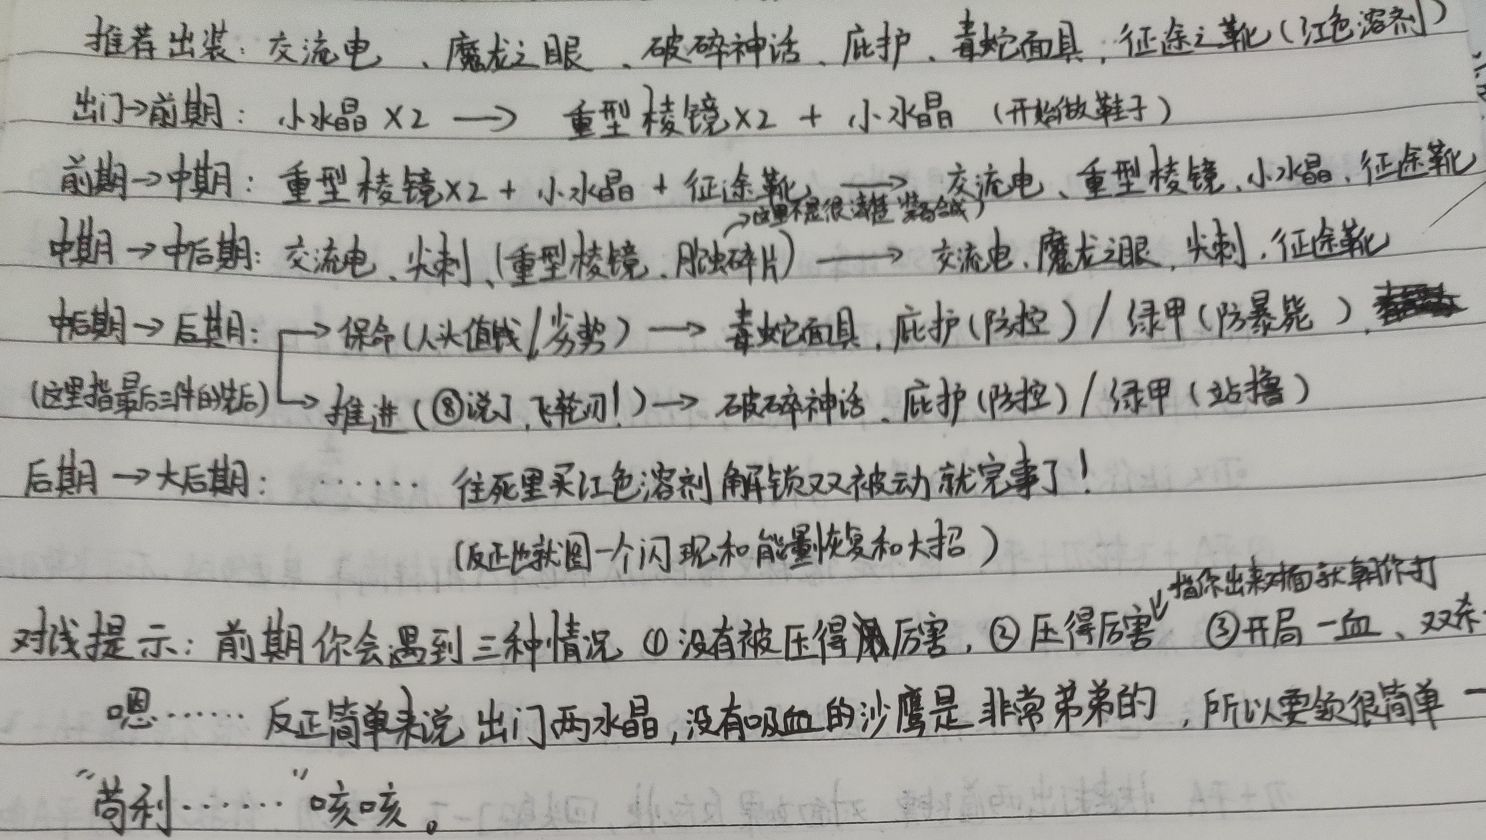 推荐出装：交流电、魔龙之眼、破碎神话、庇护、毒蛇面具，征途之靴（红色溶剂）
出门→前期：小水晶×2 → 重型棱镜×2 + 小水晶（开始做鞋子）
前期→中期：重型棱镜×2 + 小水晶 + 征途靴 → 交流电、重型棱镜、小水晶、征途靴
→这里不是很清楚装备合成）
中期→中后期：交流电、尖刺、（重型棱镜、腐蚀碎片）→ 交流电、魔龙之眼、尖刺、征途靴
中后期→后期：→保命（人头值钱/劣势）→ 毒蛇面具、庇护（防控）/ 绿甲（防暴毙）
（这里指最后三件的先后）→推进（⑧说了，飞轮刃！）→ 破碎神话、庇护（防控）/ 绿甲（站撸）
后期→大后期：…… 往死里买红色溶剂解锁双被动就完事了！
（反正也就图一个闪现和能量恢复和大招）
指你出来对面就朝你打
对线提示：前期你会遇到三种情况 ①没有被压得厉害，②压得厉害 ③开局一血、双杀
嗯…… 反正简单来说出门两水晶，没有吸血的沙鹰是非常弟弟的，所以要领很简单一
“苟利……”咳咳。